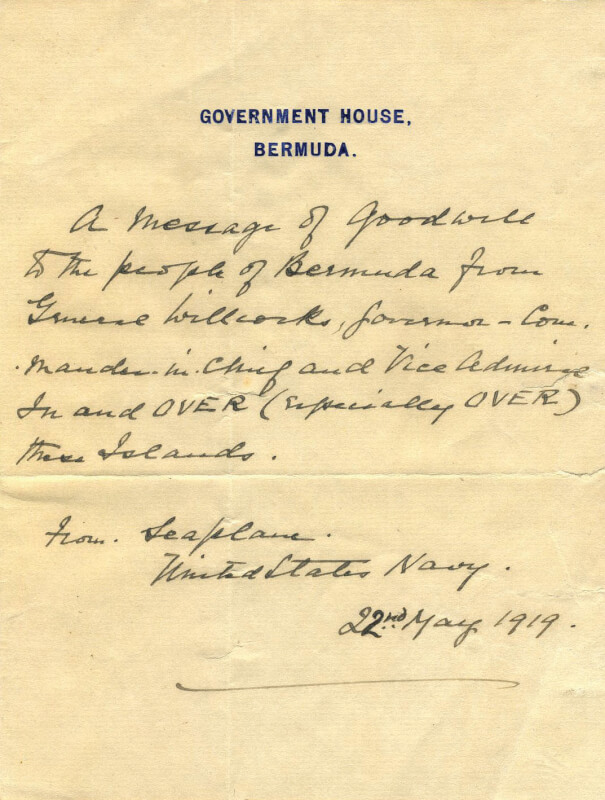 GOVERNMENT HOUSE,
BERMUDA.
A Message of Goodwill
to the people of Bermuda from
General Willcocks, Governor - Com.
. mander. in. Chief and Vice Admiral
In and OVER (especially OVER)
these Islands.
From. Seaplane.
United States Navy.
22nd May 1919.